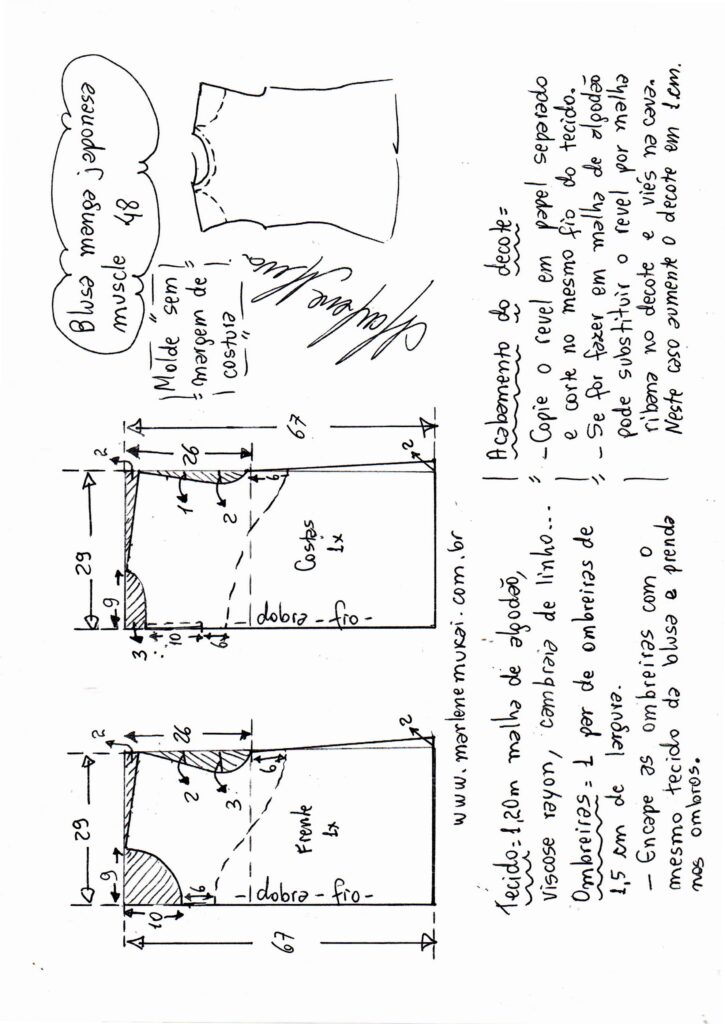 Blusa manga japonesa
muscle 48
"Molde sem
margem de
costura"
67
29
9
10
2
26
2
3
6
6
dobra - fio -
Frente
1x
2
29
9
3
10
6
2
26
1
2
6
dobra - fio -
Costas
1x
2
67
www.marlenemukai.com.br
Tecido=1,20m malha de algodão,
viscose rayon, cambraia de linho...
Ombreiras= 1 par de ombreiras de
1,5 cm de largura.
- Encape as ombreiras com o
mesmo tecido da blusa e prenda
nos ombros.
Acabamento do decote=
- Copie o revel em papel separado
e corte no mesmo fio do tecido.
- Se for fazer em malha de algodão
pode substituir o revel por malha
ribana no decote e viés na cava.
Neste caso aumente o decote em 1cm.